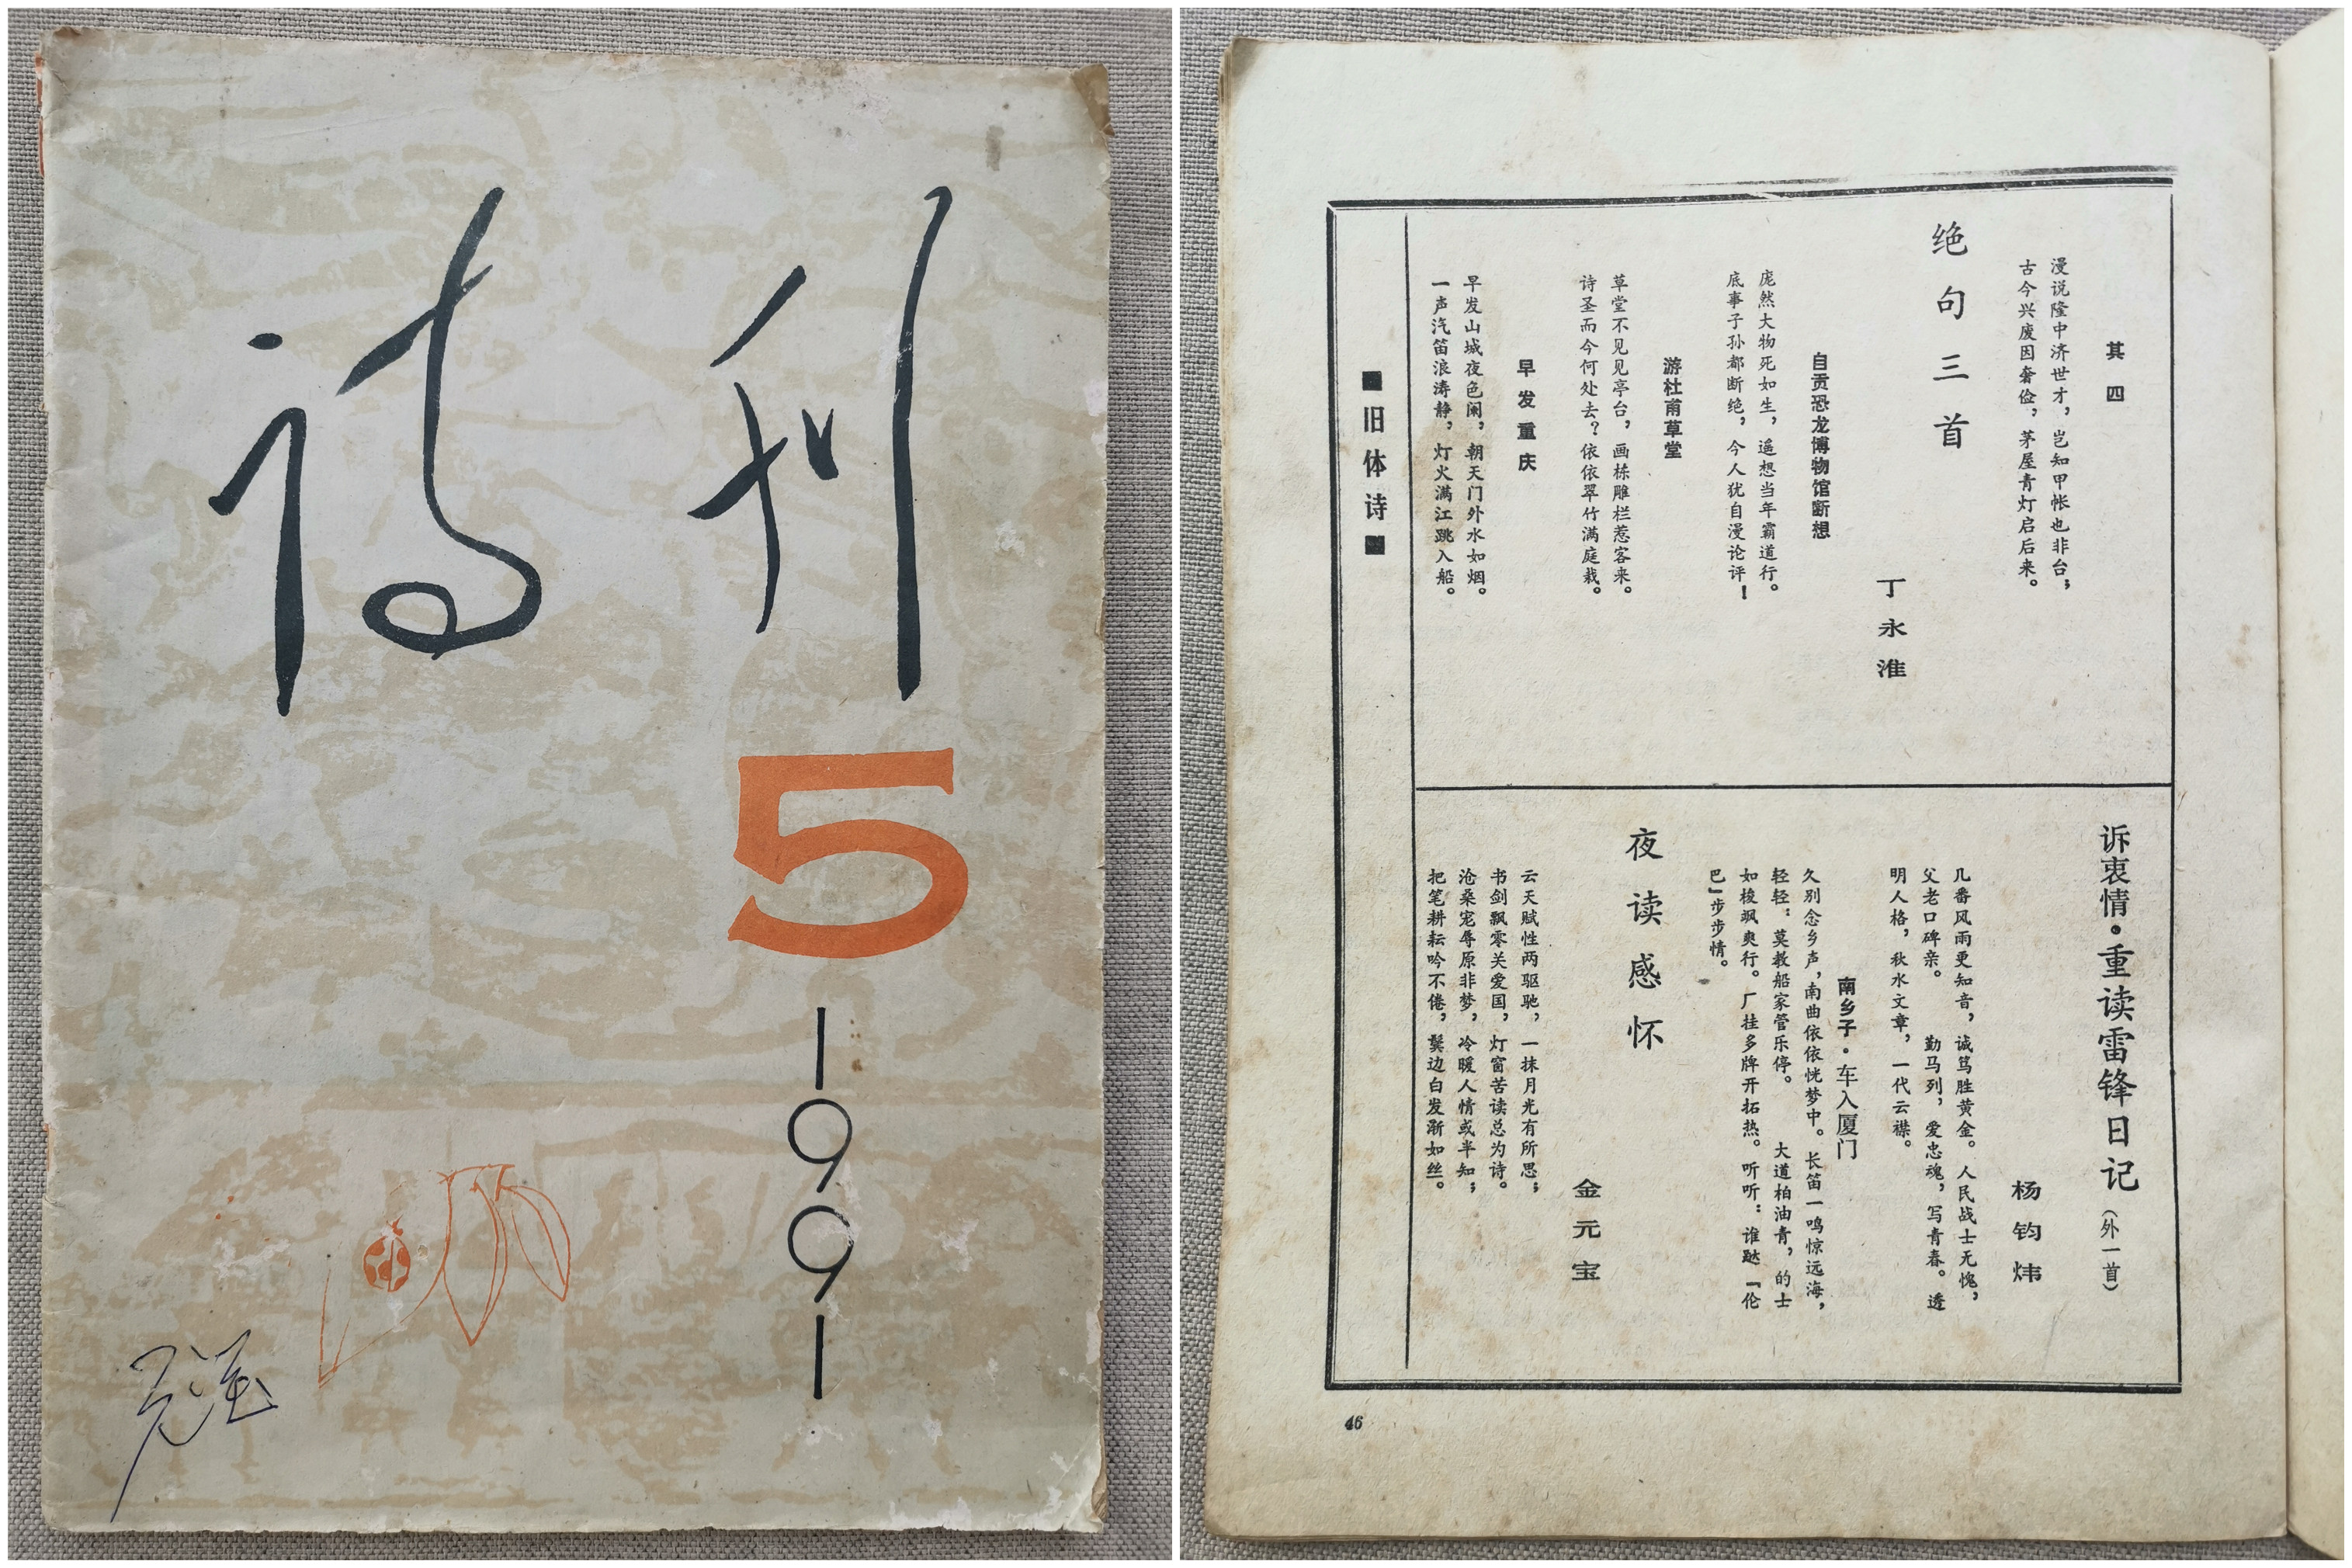 诗刊
5
1991
其四
漫说隆中济世才，岂知甲帐也非台；
古今兴废因奢俭，茅屋青灯启后来。
绝句三首
丁永淮
自贡恐龙博物馆断想
庞然大物死如生，遥想当年霸道行。
底事子孙都断绝，今人犹自漫论评！
游杜甫草堂
草堂不见见亭台，画栋雕栏惹客来。
诗圣而今何处去？依依翠竹满庭栽。
早发重庆
早发山城夜色阑，朝天门外水如烟。
一声汽笛浪涛静，灯火满江跳入船。
诉衷情·重读雷锋日记（外一首）
杨钧炜
几番风雨更知音，诚笃胜黄金。人民战士无愧，
父老口碑亲。 勤马列，爱忠魂，写青春。透
明人格，秋水文章，一代云襟。
南乡子·车入厦门
久别念乡声，南曲依依恍梦中。长笛一鸣惊远海，
轻轻：莫教船家管乐停。 大道柏油青，的士
如梭飒爽行。厂挂多牌开拓热。听听：谁跶『伦
巴』步步情。
夜读感怀
金元宝
云天赋性两驱驰，一抹月光有所思；
书剑飘零关爱国，灯窗苦读总为诗。
沧桑宠辱原非梦，冷暖人情或半知；
把笔耕耘吟不倦，鬓边白发渐如丝。
■旧体诗■
46